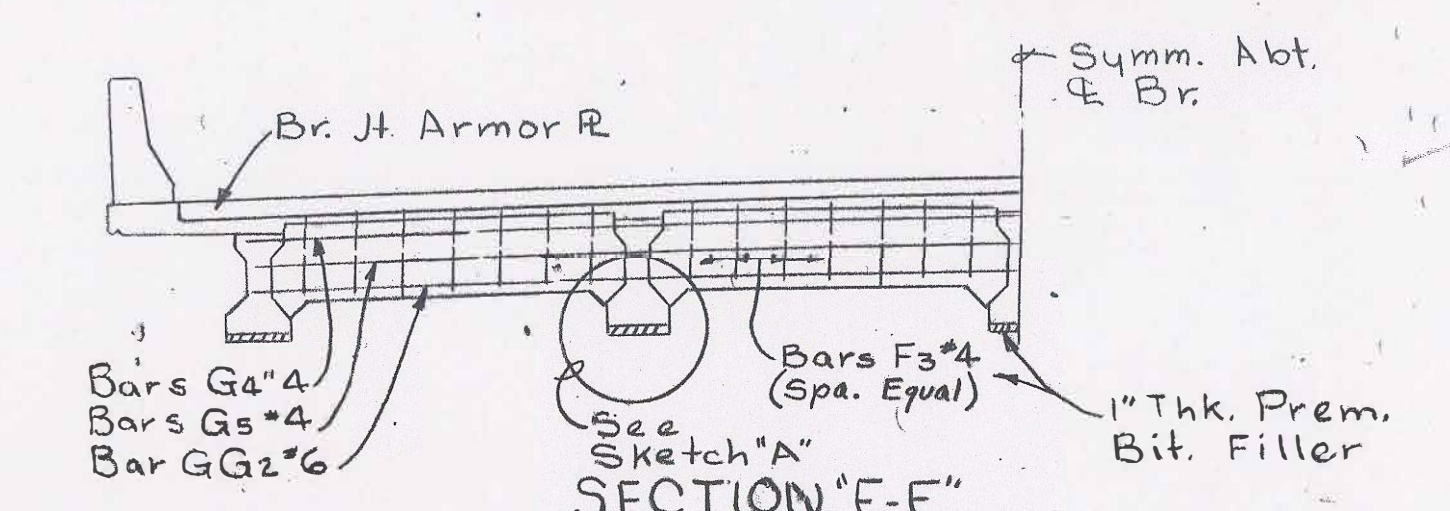 Symm. Abt.
℄ Br.
Br. Jt. Armor ℞
Bars G4 "4
Bars G5 #4
Bar GG2 #6
See
Sketch "A"
Bars F3 #4
(Spa. Equal)
1" Thk. Prem.
Bit. Filler
SECTION "E-E"